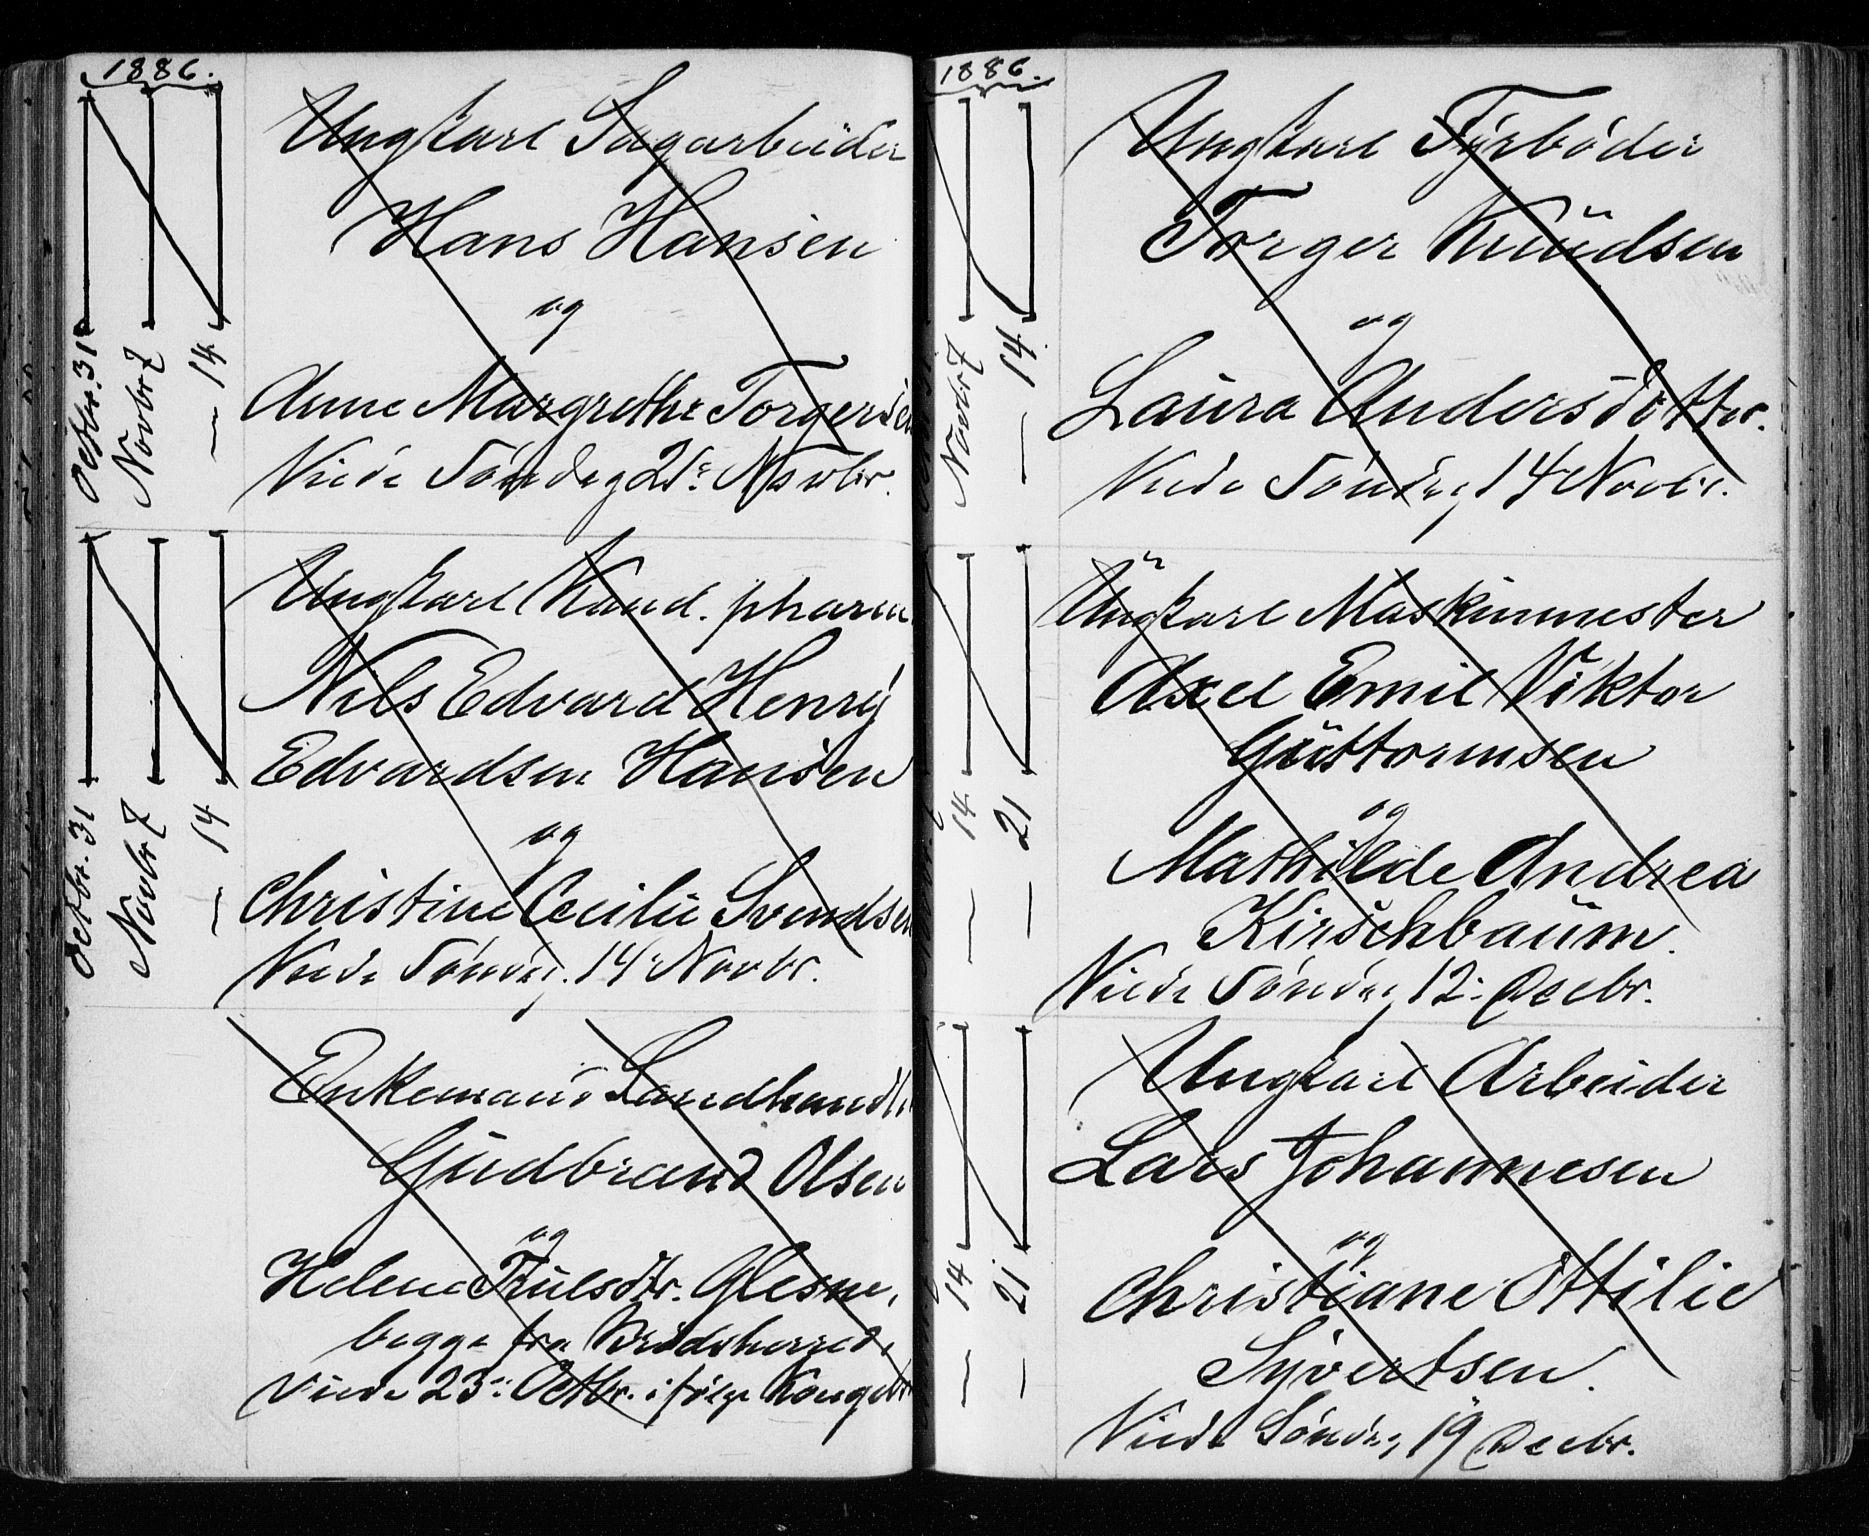 1886.
Ungkarl Sagarbeider
Hans Hansen
og
Anne Margrethe Torgersen
Viede Søndag 21de Novbr.
Octbr. 31
Novbr 7
— 14
Ungkarl Kand. pharm
Nils Edvard Henry
Edvardsen Hansen
og
Christine Cecilie Svendsen
Viede Søndag 14 Novbr.
Octbr. 31
Novbr 7
— 14
Enkemand Landhandl
Gudbrand Olsen
og
Helene Trulsdtr. Glesne,
begge fra
viede 23de Octbr. ifølge Kongebr
1886.
Ungkarl Fyrbøder
Torger Knudsen
og
Laura Andersdotter.
Viede Søndag 14 Novbr.
Novbr 7
— 14
Ungkarl Maskinmester
Axel Emil Viktor
Guttormsen
og
Mathilde Andrea
Kirschbaum.
Viede Søndag 12. Decbr.
— 14
— 21
Ungkarl Arbeider
Lars Johannesen
og
Christiane Ottilie
Syvertsen.
Viede Søndag 19 Decbr.
— 14
— 21